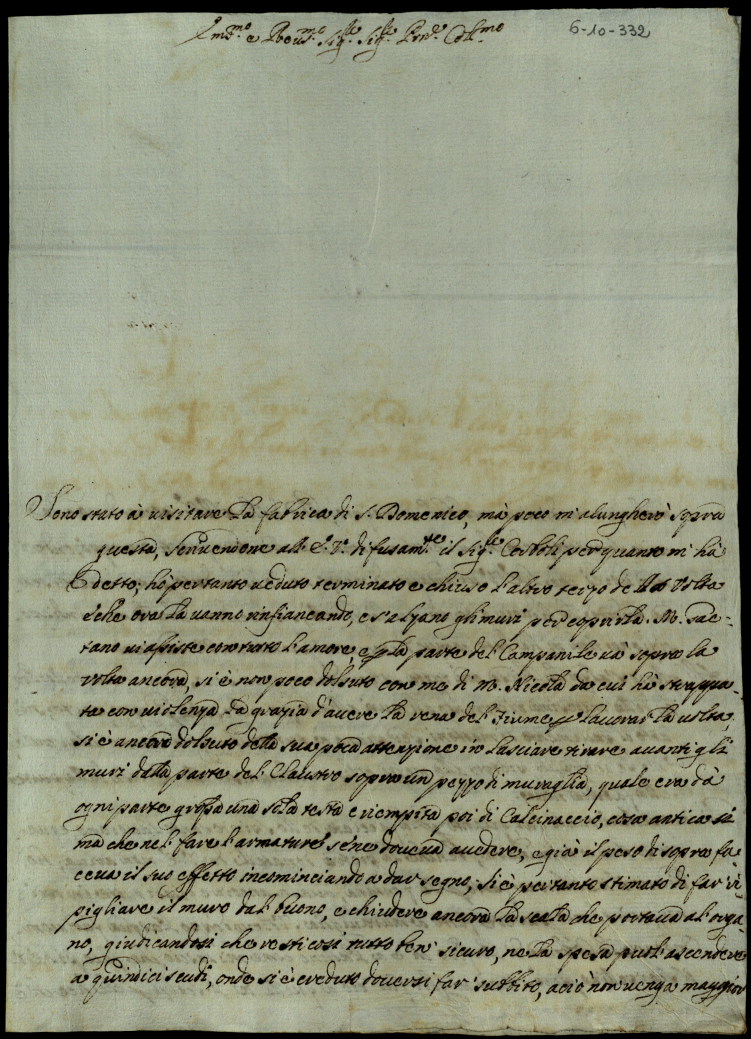 Em.mo e Reu.mo Sig.re Sig.re Prne Col.mo
6-10-332
Sono stato à uisitare la fabrica di S. Domenico, mà poco m'alungherò sopra
questa, scriuendone all' E. V. difusam.te il Sig.re per quanto m'hà
detto; hò pertanto ueduto terminato e chiuso l'altro terzo della Volta
che ora la uanno rinfiancando, e s'alzano gli muri per coprirla. M. Gae-
tano ui assiste con tutto l'amore, e la parte del Campanile uà sopra la
volta ancora, si è non poco doluto con me di M. Nicola da cui hà strappa-
ta con uiolenza la grazia d'auere la rena del Fiume p lauorar la uolta,
si è ancora doluto della sua poca attenzione in lasciare tirare auanti gli
muri dalla parte del Claustro sopra un pezzo di muraglia, quale era dà
ogni parte grossa una sola testa e riempita poi di Calcinaccio, cosa antica sì
mà che nel fare l'armature se ne doueua auedere, e già il peso di sopra fa
ceua il suo effetto incominciando a dar segno, si è pertanto stimato di far ri-
pigliare il muro dal buono, e chiudere ancora la scala che portaua all'orga-
no, giudicandosi che resti così tutto ben sicuro, ne la spesa può ascendere
a quindici scudi, onde si è creduto douersi far subbito, aciò non uenga maggior